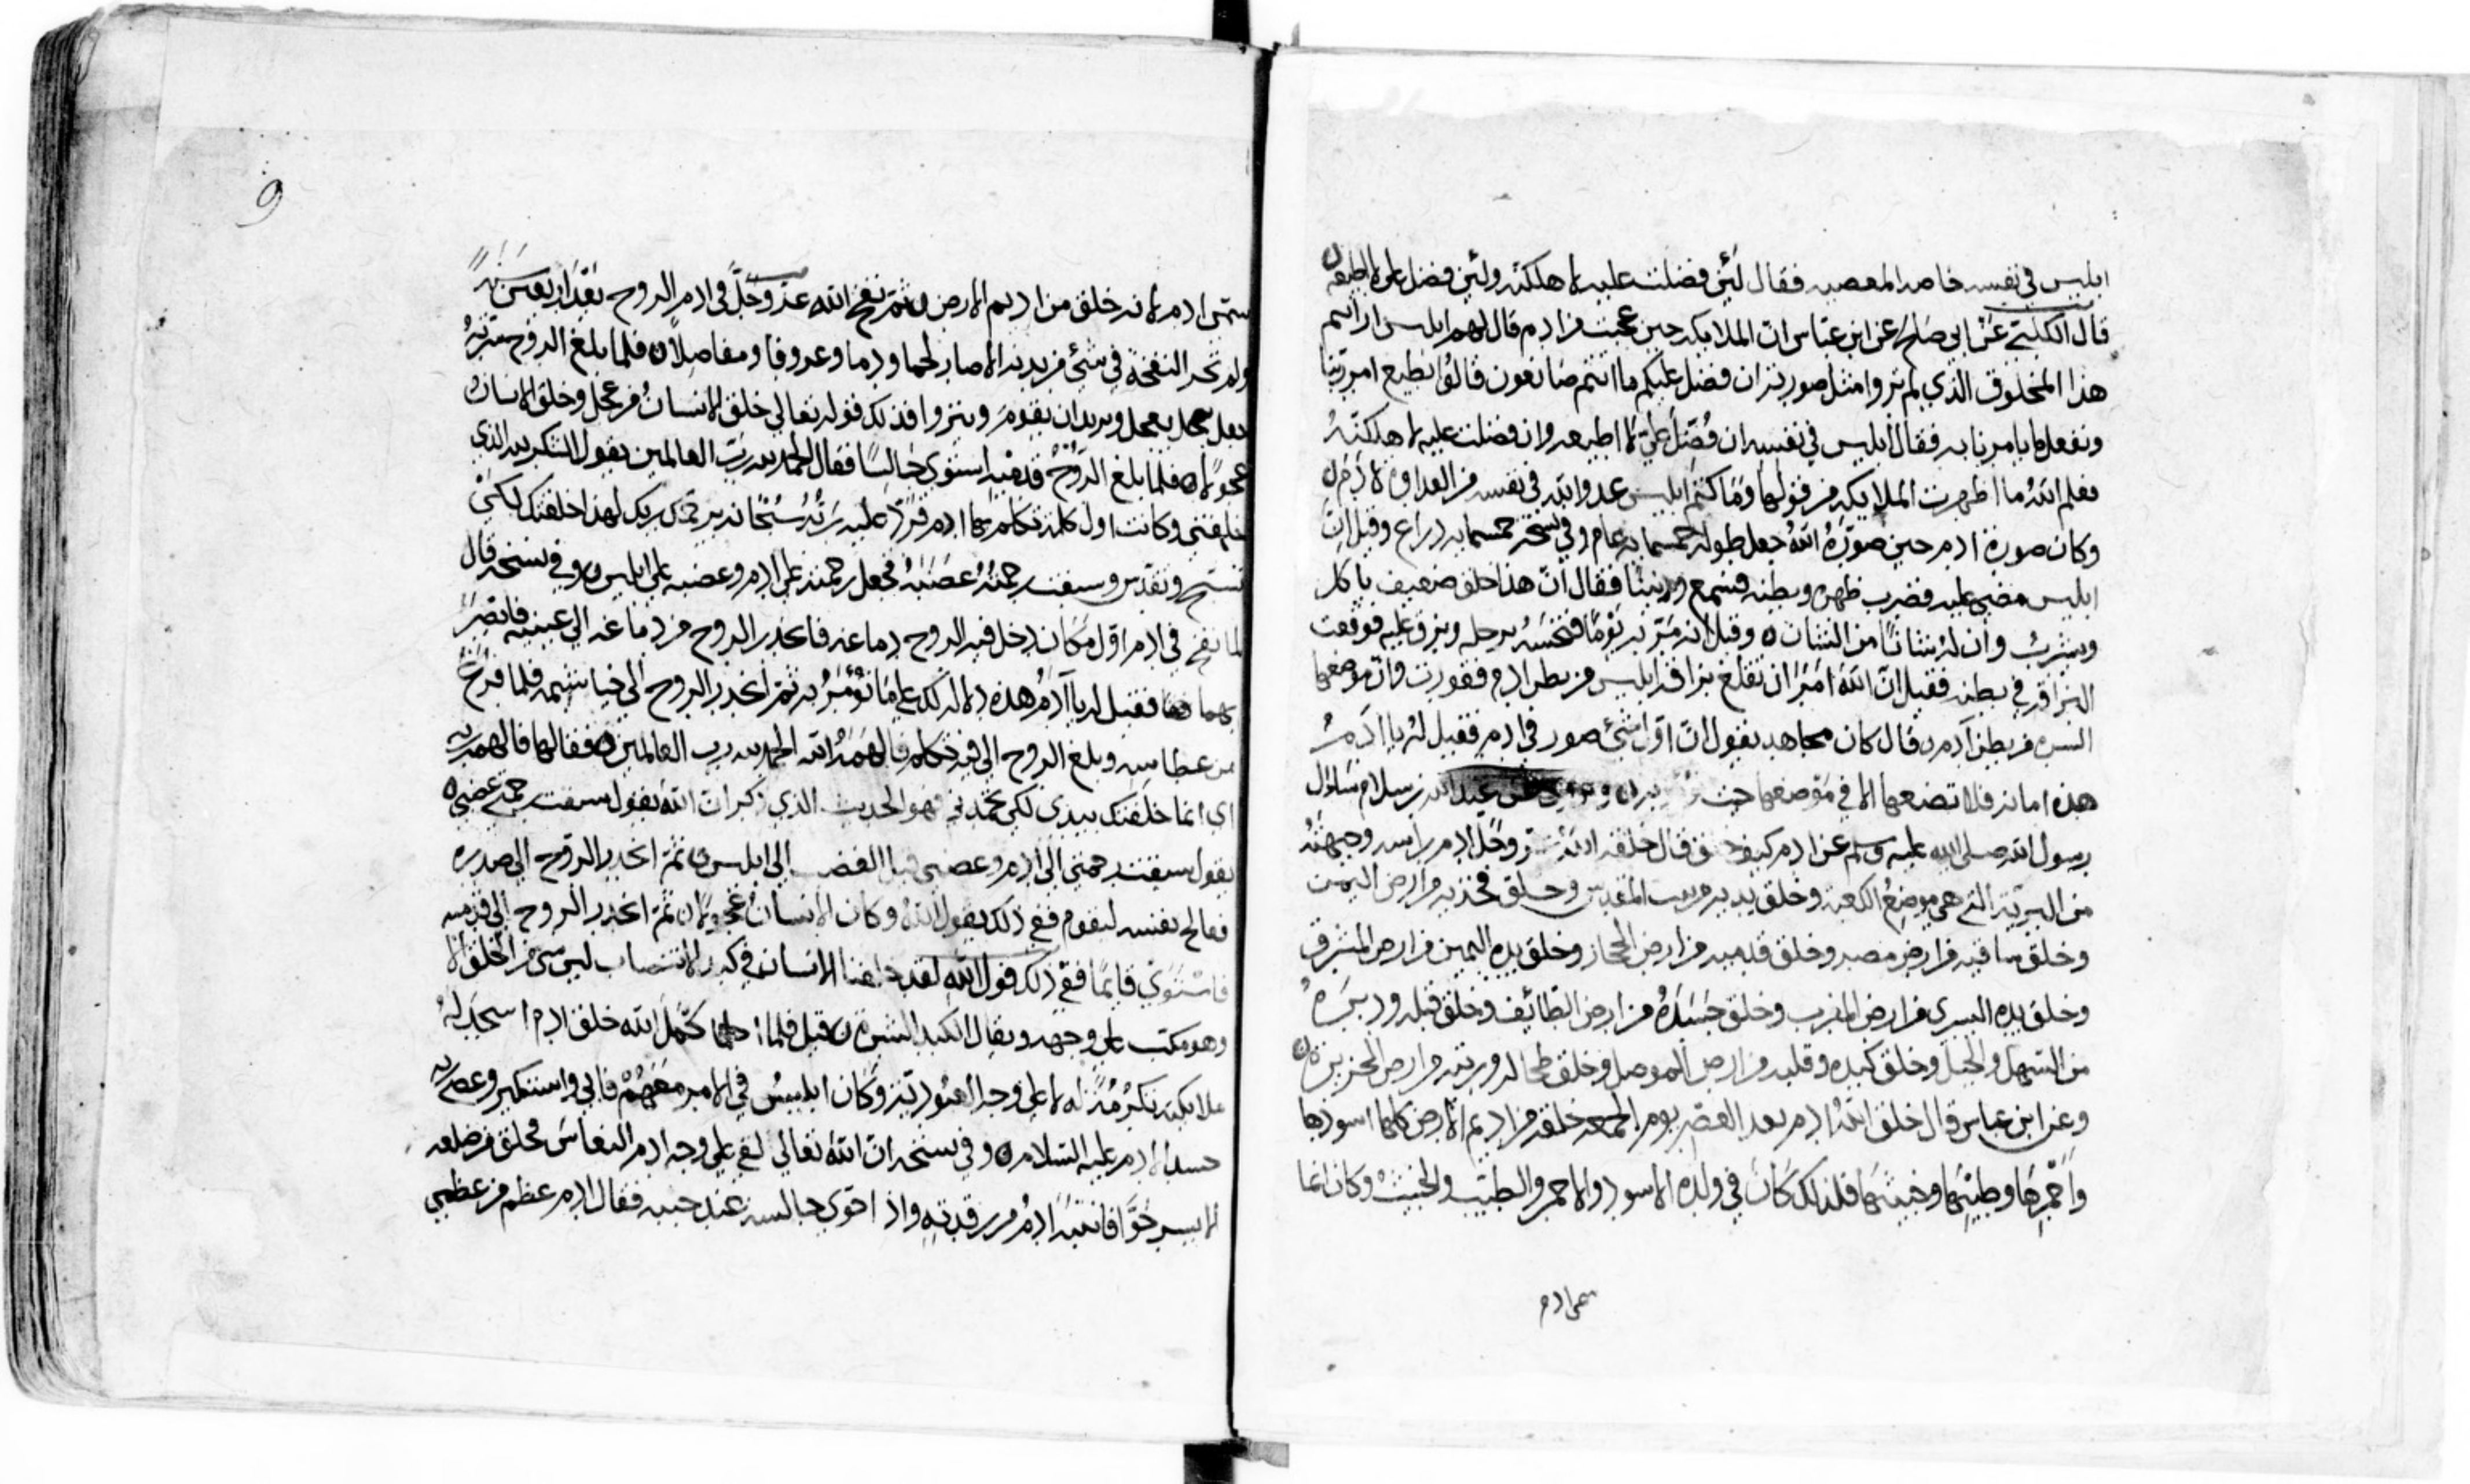 ابليس في نفسه خاصه المعصيه فقال لئن فضلت عليه لاهلكنه ولئن فضل على لا اطيعه
قال الكلبي عن ابي صالح عن ابن عباس ان الملايكه حين عجبت من ادم قال لهم ابليس ارايتم
هذا المخلوق الذي لم تروا مثل صورته ان فضل عليكم ما انتم صانعون قالوا نطيع امر ربنا
ونفعل ما يامرنا به فقال ابليس في نفسه ان فُضّل عليّ لا اطيعه وان فضلت عليه لاهلكنّه
فعلم الله ما اظهرت الملايكه من قولها وما كتم ابليس عدو الله في نفسه من العداوة لادم
وكان صورة ادم حين صوّرهُ الله جعل طوله خمسمايه عام وفي نسخه خمسمايه ذراع وقيل انّ
ابليس مضي عليه فضرب ظهره وبطنه فسمع فقال انّ هذا خلق ضعيف ياكل
ويشرب وان له شاناً من الشان وقيل انه مَرّ به يَوماً فنخسَهُ برجله وبزق عليه فوقعت
البزاقه في بطنه فقيل انّ الله امَرَ ان تقلع بزاقة ابليس من بطن ادم فقورت فان موضعها
السره من بطن آدم وقال كان مجاهد يقول انّ اوّل شئ صور في ادم فقيل لهُ يا آدمُ
هذه امانه فلا تضعها الا في مَوضعها حيث عبد الله بن سلام سَاول
رسول الله صلى الله عليه وسلم عن ادم كيف خلق قال خلق الله عز وجل ادم راسه وجبهتهُ
من التربة التي هي موضعُ الكعبة وخلق يديه من بيت المقدس وخلق فخذيه من ارض اليمن
وخلق ساقيه من ارض مصر وخلق قدميه من ارض الحجاز وخلق يده اليمين من ارض المشرق
وخلق يده اليسرى من ارض المغرب وخلق جَسَدَهُ من ارض الطائف وخلق قبله ودبرَهُ
من السهل والجبل وخلق كبده وقلبه من ارض الموصل وخلق طحاله وريته من ارض الجزيرة
وعن ابن عباس قال خلق اللهُ ادم بعد العصر يوم الجمعه خلقه من اديم الارض كلها اسودها
واَحْمرِهَا وطيّبِها وخبيثها فلذلك كَانَ في ولده الاسود والاحمر والطيّب والخبيث وكان انما
سمي ادم
9
سمّي ادم لانه خلق من اديم الارض ثمّ نفخ الله عزّ وجَلّ في ادم الروح
ولم تجر النفخة في شئ من بدنه الا صار لحما ودما وعروقا ومفاصلاً فلما بلغ الروح سرّتهُ
جعل يعجل ويريد ان يقومَ وينزوا فذلك قوله تعالى خلق الانسانُ من عجل وخلق الانسانُ
عجولاً فلما بلغ الروحُ قدميه استوي جَالسًا فقال الحمد لله رب العالمين يقول الشكر لله الذي
خلقني وكانت اول كلمة تكلم بها ادم فرَدّ عليه رَبُّهُ سُبْحَانه يرحمك ربك لهذا خلقتك لكيْ
تسبّح وتقدس وسبقت رحمتُهُ غضَبَهُ فجعل رحمته على ادم وغضبه على ابليس وفي نسخه قال
لما نفخ في ادم اوّل مَكان دخل فيه الروح دماغه فانحدر الروح من دماغه الي عينيه فابصرَ
بهما فقيل له يا آدمُ هذه دلالة لك على مَا تُؤْمَرُ به ثمّ انحدر الروح الي خياشيمه فلما فرغَ
من عطاسه وبلغ الروح الي فيه تكلم فالهمَهُ الله الحمد لله رب العالمين فقالها فالهمه ربه
اي انما خلقتك بيدي لكي تحمدني فهو الحديث الذي ذكر انّ الله يقول سبقت رحمتي غضبي
يقول سبقت رحمتي الي ادم وغضبي قبل الغضب الي ابليس ثمّ انحدر الروح الي صدره
فعالج نفسه ليقوم ففي ذلك يقول اللهُ وكان الانسانُ عجولاً ثمّ انحدر الروح الي قدميه
فاستوَي قايمًا ففي ذلك قول الله لقد خلقنا الانسان في كبد الانتصاب ليس شئ من الخلق الا
وهو مكب على وجهه ويقال الكبد الشدة قيل فلما كمّلَ الله خلق ادم اسجد لهُ
ملايكته تكرُمُةً له لا على وجه العبوديّة وكان ابليسُ في الامر معَهُمْ فابي واستكبر وعصى ربه
حسداً لادم عليه السّلام وفي نسخه انّ الله تعالى القي علي وجه ادم النعاسَ فخلق من ضلعه
الايسر حَوّا فانتبه ادمُ من رقدته واذا حَوي جالسه عند جنبه فقال ادم عظم من عظمي